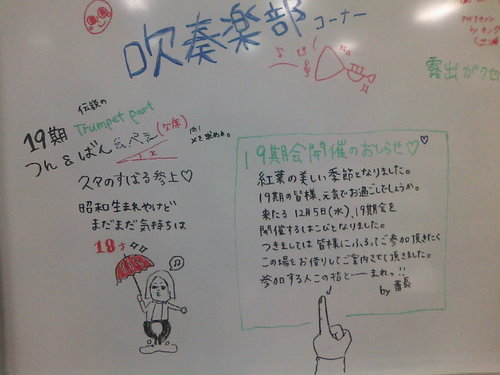 吹奏楽部 コーナー
露出がクセ
伝説の
Trumpet part
19期
つん&ばん
(欠席)
スマのすばる参上♡
昭和生まれやけど
まだまだ気持ちは
18才
19期会開催のおしらせ♡
紅葉の美しい季節となりました。
19期の皆様、元気でお過ごしでしょうか。
来たる 12月5日(水)、19期会を
開催するはこびとなりました。
つきましては 皆様にふるってご参加頂きたく
この場をお借りしてご案内させて頂きました。
参加する人この指と──まれっ!!
by 番長